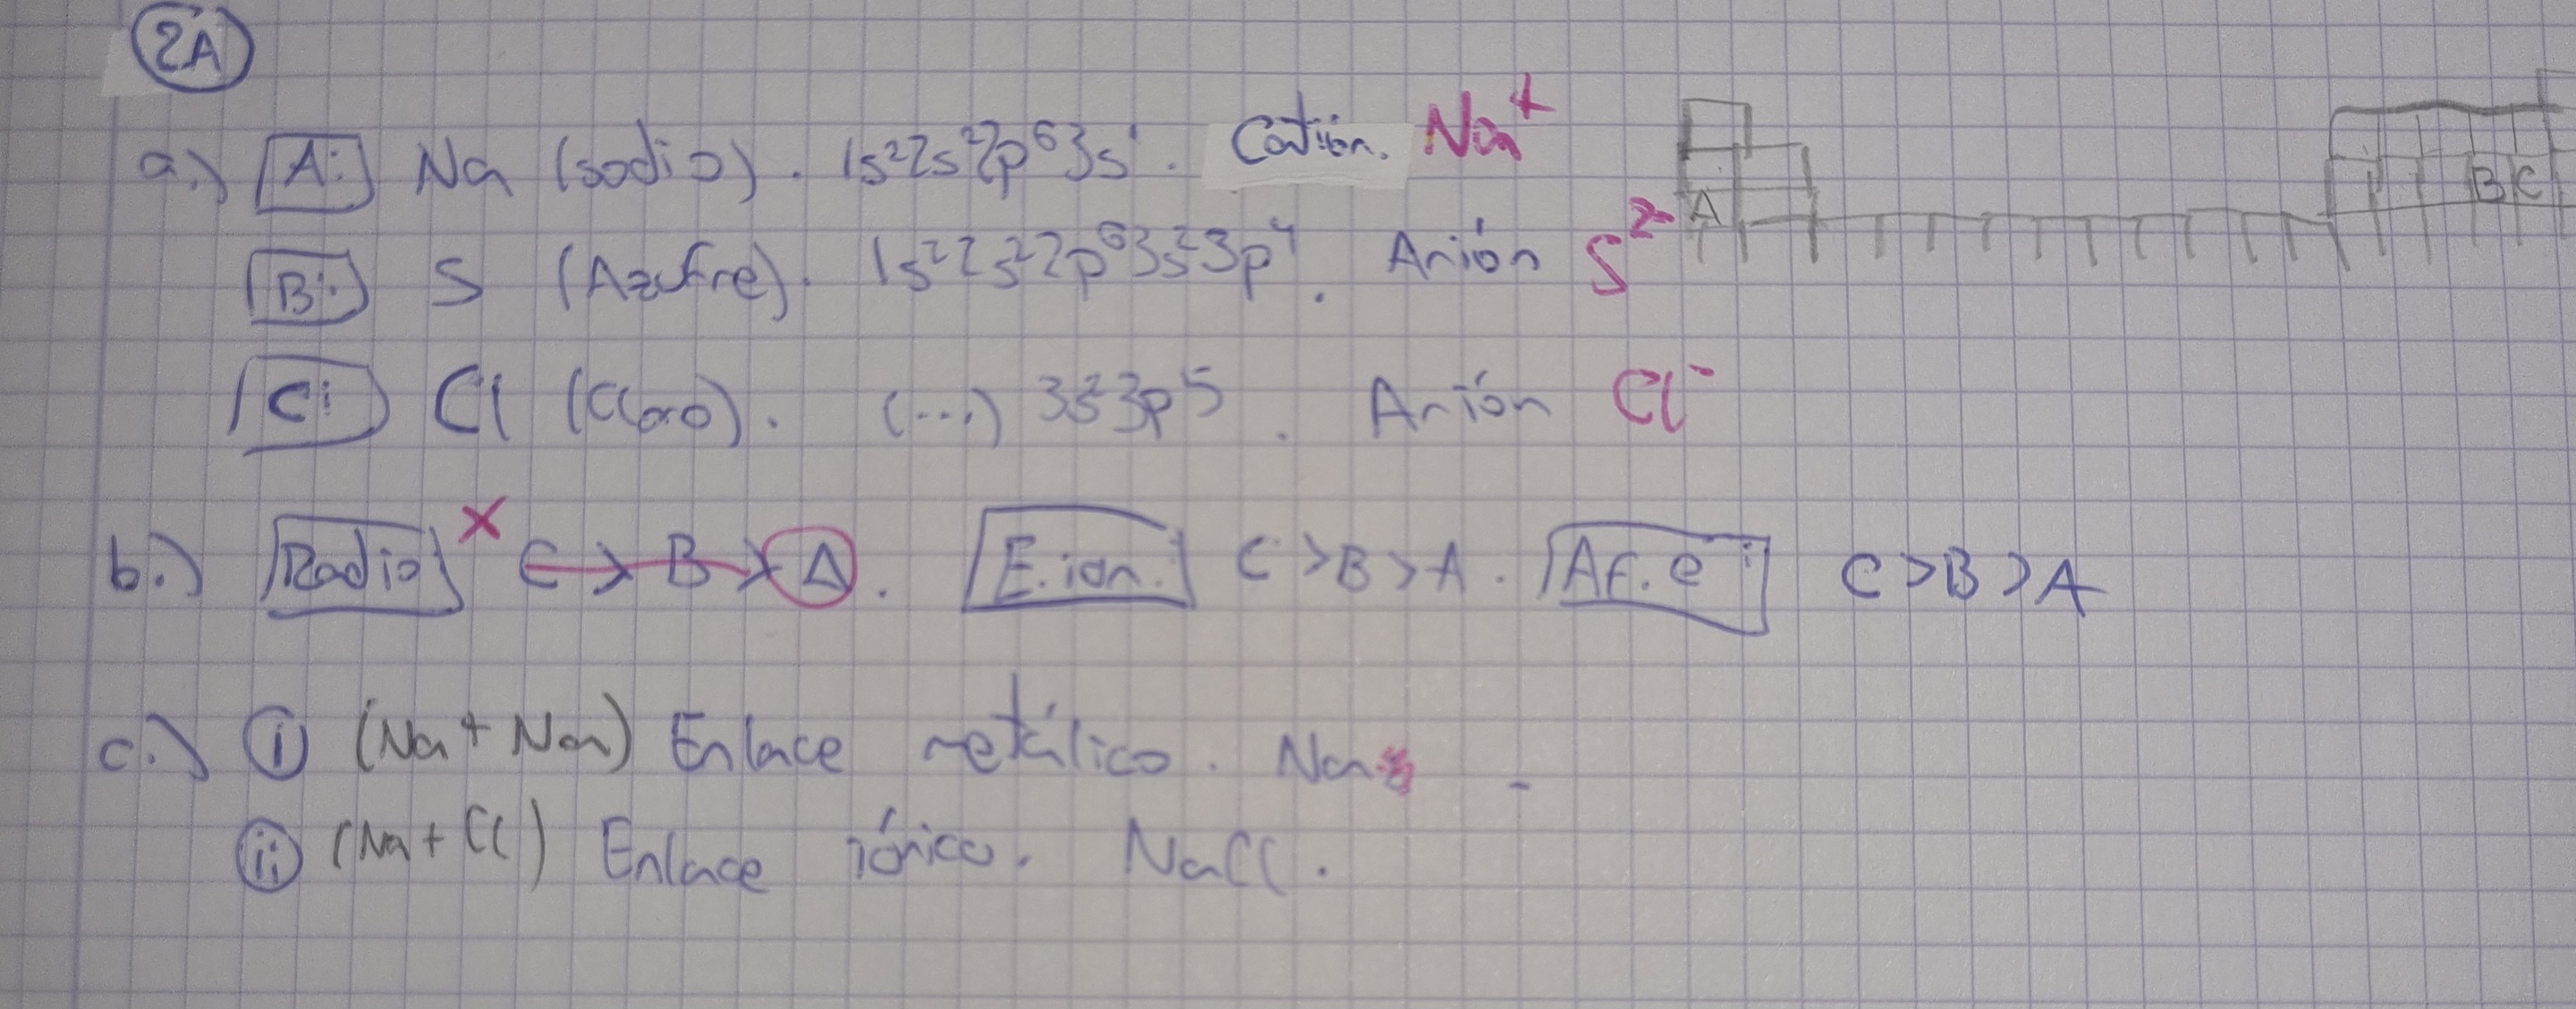 2A
a.) A: Na (sodio). 1s²2s²2p⁶3s¹. Catión. Na⁺
B: S (Azufre). 1s²2s²2p⁶3s²3p⁴. Anión S²⁻
C: Cl (Cloro). (...) 3s²3p⁵. Anión Cl⁻
A B C
b.) Radio x C > B > A. E. ion. C > B > A. Af. e⁻ C > B > A
c.) i (Na + Na) Enlace metálico. Na
ii (Na + Cl) Enlace iónico. NaCl.